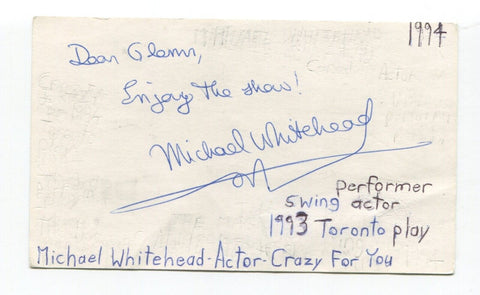 1994
Dear Glenn,
Enjoy the show!
Michael Whitehead
performer
swing actor
1993 Toronto play
Michael Whitehead-Actor-Crazy For You